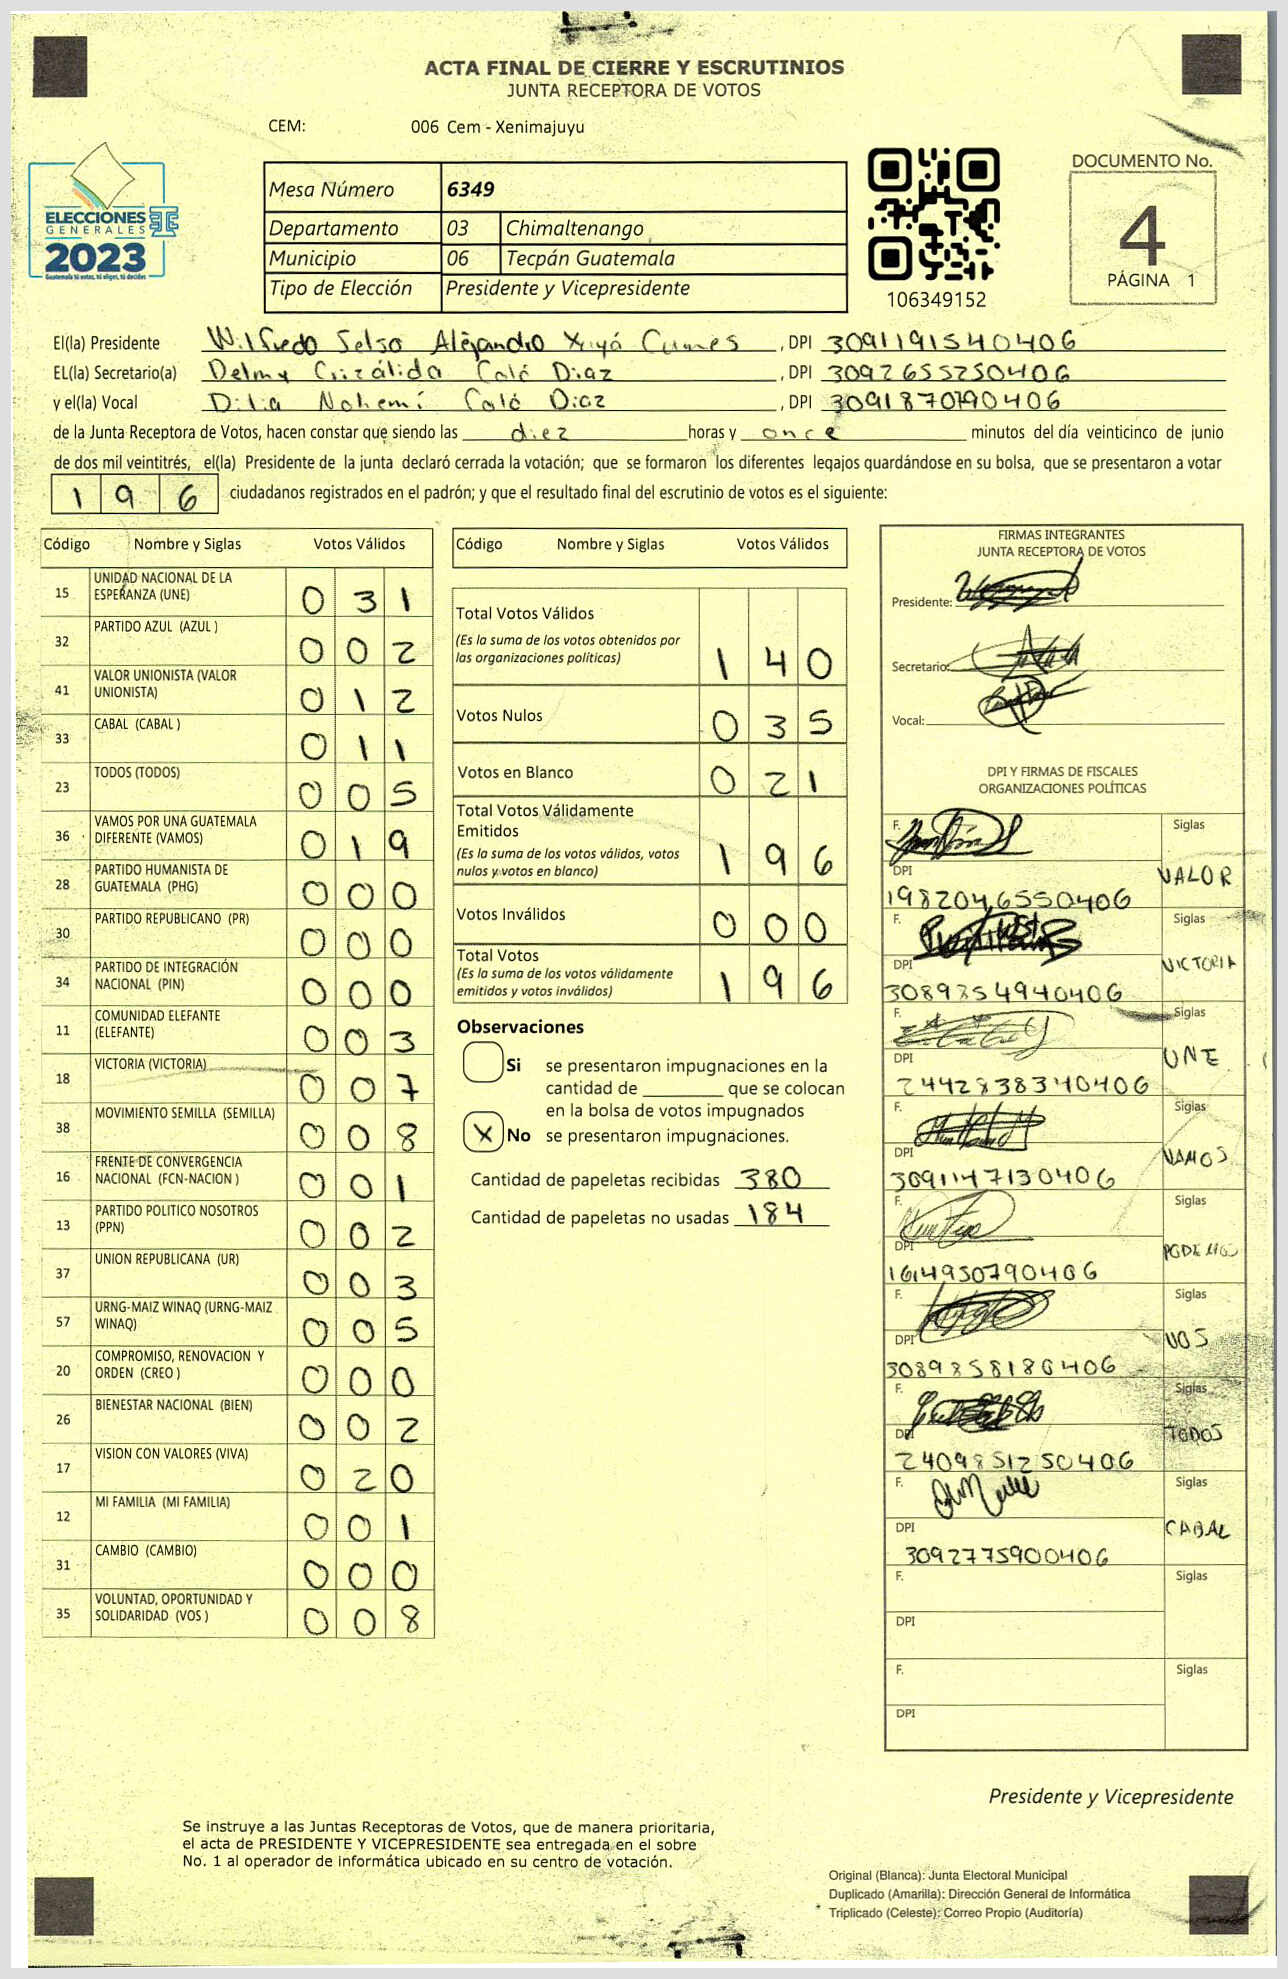 ACTA FINAL DE CIERRE Y ESCRUTINIOS
JUNTA RECEPTORA DE VOTOS
CEM: 006 Cem - Xenimajuyu
ELECCIONES
GENERALES
2023
Guatemala tú votas, tú eliges, tú decides
Mesa Número 6349
Departamento 03 Chimaltenango
Municipio 06 Tecpán Guatemala
Tipo de Elección Presidente y Vicepresidente
106349152
DOCUMENTO No.
4
PÁGINA 1
El(la) Presidente Wilfredo Selso Alejandro Xuyá Cumes , DPI 3091191540406
EL(la) Secretario(a) Delmy Crizálida Caló Diaz , DPI 3092655250406
y el(la) Vocal Dilia Nohemí Caló Diaz , DPI 3091870790406
de la Junta Receptora de Votos, hacen constar que siendo las diez horas y once minutos del día veinticinco de junio
de dos mil veintitrés, el(la) Presidente de la junta declaró cerrada la votación; que se formaron los diferentes legajos guardándose en su bolsa, que se presentaron a votar
196 ciudadanos registrados en el padrón; y que el resultado final del escrutinio de votos es el siguiente:
Código Nombre y Siglas Votos Válidos
15 UNIDAD NACIONAL DE LA ESPERANZA (UNE) 031
32 PARTIDO AZUL (AZUL ) 002
41 VALOR UNIONISTA (VALOR UNIONISTA) 012
33 CABAL (CABAL ) 011
23 TODOS (TODOS) 005
36 VAMOS POR UNA GUATEMALA DIFERENTE (VAMOS) 019
28 PARTIDO HUMANISTA DE GUATEMALA (PHG) 000
30 PARTIDO REPUBLICANO (PR) 000
34 PARTIDO DE INTEGRACIÓN NACIONAL (PIN) 000
11 COMUNIDAD ELEFANTE (ELEFANTE) 003
18 VICTORIA (VICTORIA) 007
38 MOVIMIENTO SEMILLA (SEMILLA) 008
16 FRENTE DE CONVERGENCIA NACIONAL (FCN-NACION ) 001
13 PARTIDO POLITICO NOSOTROS (PPN) 002
37 UNION REPUBLICANA (UR) 003
57 URNG-MAIZ WINAQ (URNG-MAIZ WINAQ) 005
20 COMPROMISO, RENOVACION Y ORDEN (CREO ) 000
26 BIENESTAR NACIONAL (BIEN) 002
17 VISION CON VALORES (VIVA) 020
12 MI FAMILIA (MI FAMILIA) 001
31 CAMBIO (CAMBIO) 000
35 VOLUNTAD, OPORTUNIDAD Y SOLIDARIDAD (VOS ) 008
Código Nombre y Siglas Votos Válidos
Total Votos Válidos
(Es la suma de los votos obtenidos por
las organizaciones políticas) 140
Votos Nulos 035
Votos en Blanco 021
Total Votos Válidamente
Emitidos
(Es la suma de los votos válidos, votos
nulos y votos en blanco) 196
Votos Inválidos 000
Total Votos
(Es la suma de los votos válidamente
emitidos y votos inválidos) 196
Observaciones
Si se presentaron impugnaciones en la
cantidad de ________ que se colocan
en la bolsa de votos impugnados
X No se presentaron impugnaciones.
Cantidad de papeletas recibidas 380
Cantidad de papeletas no usadas 184
FIRMAS INTEGRANTES
JUNTA RECEPTORA DE VOTOS
Presidente:
Secretario:
Vocal:
DPI Y FIRMAS DE FISCALES
ORGANIZACIONES POLÍTICAS
F. Siglas
DPI VALOR
1982046550406
F. Siglas
DPI VICTORIA
3089354940406
F. Siglas
DPI UNE
2442838340406
F. Siglas
DPI VAMOS
3091147130406
F. Siglas
DPI PODEMOS
1614950790406
F. Siglas
DPI VOS
3089858180406
F. Siglas
DPI TODOS
2409851250406
F. Siglas
DPI CABAL
3092775900406
F. Siglas
DPI
F. Siglas
DPI
Presidente y Vicepresidente
Se instruye a las Juntas Receptoras de Votos, que de manera prioritaria,
el acta de PRESIDENTE Y VICEPRESIDENTE sea entregada en el sobre
No. 1 al operador de informática ubicado en su centro de votación.
Original (Blanca): Junta Electoral Municipal
Duplicado (Amarilla): Dirección General de Informática
Triplicado (Celeste): Correo Propio (Auditoría)